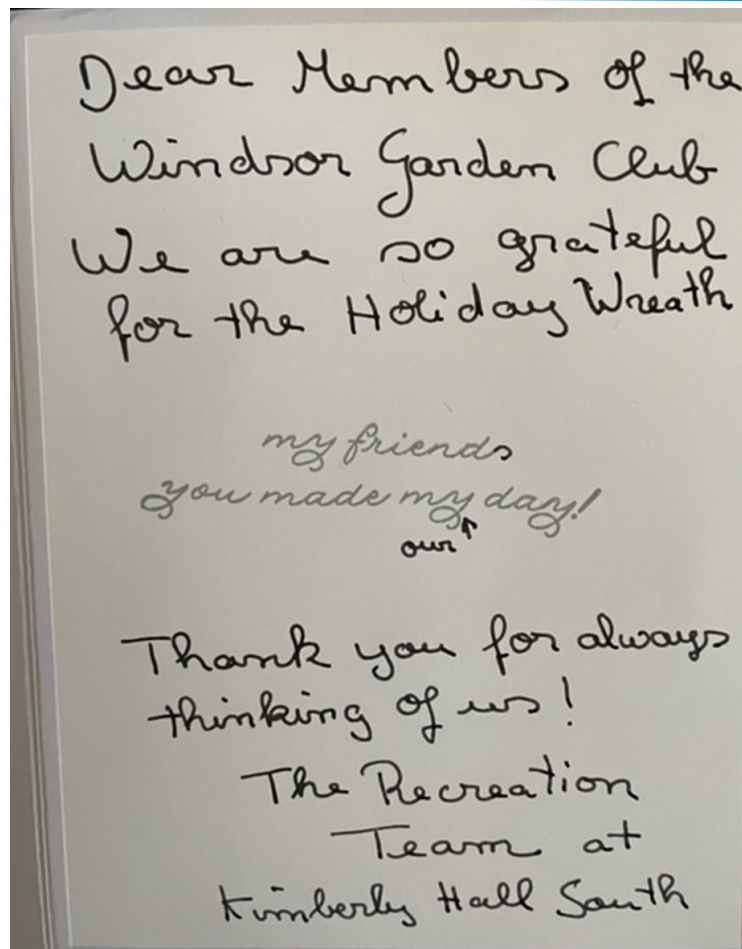 Dear Members of the
Windsor Garden Club
We are so grateful
for the Holiday Wreath
my friends
you made my day!
our
Thank you for always
thinking of us!
The Recreation
Team at
Kimberly Hall South